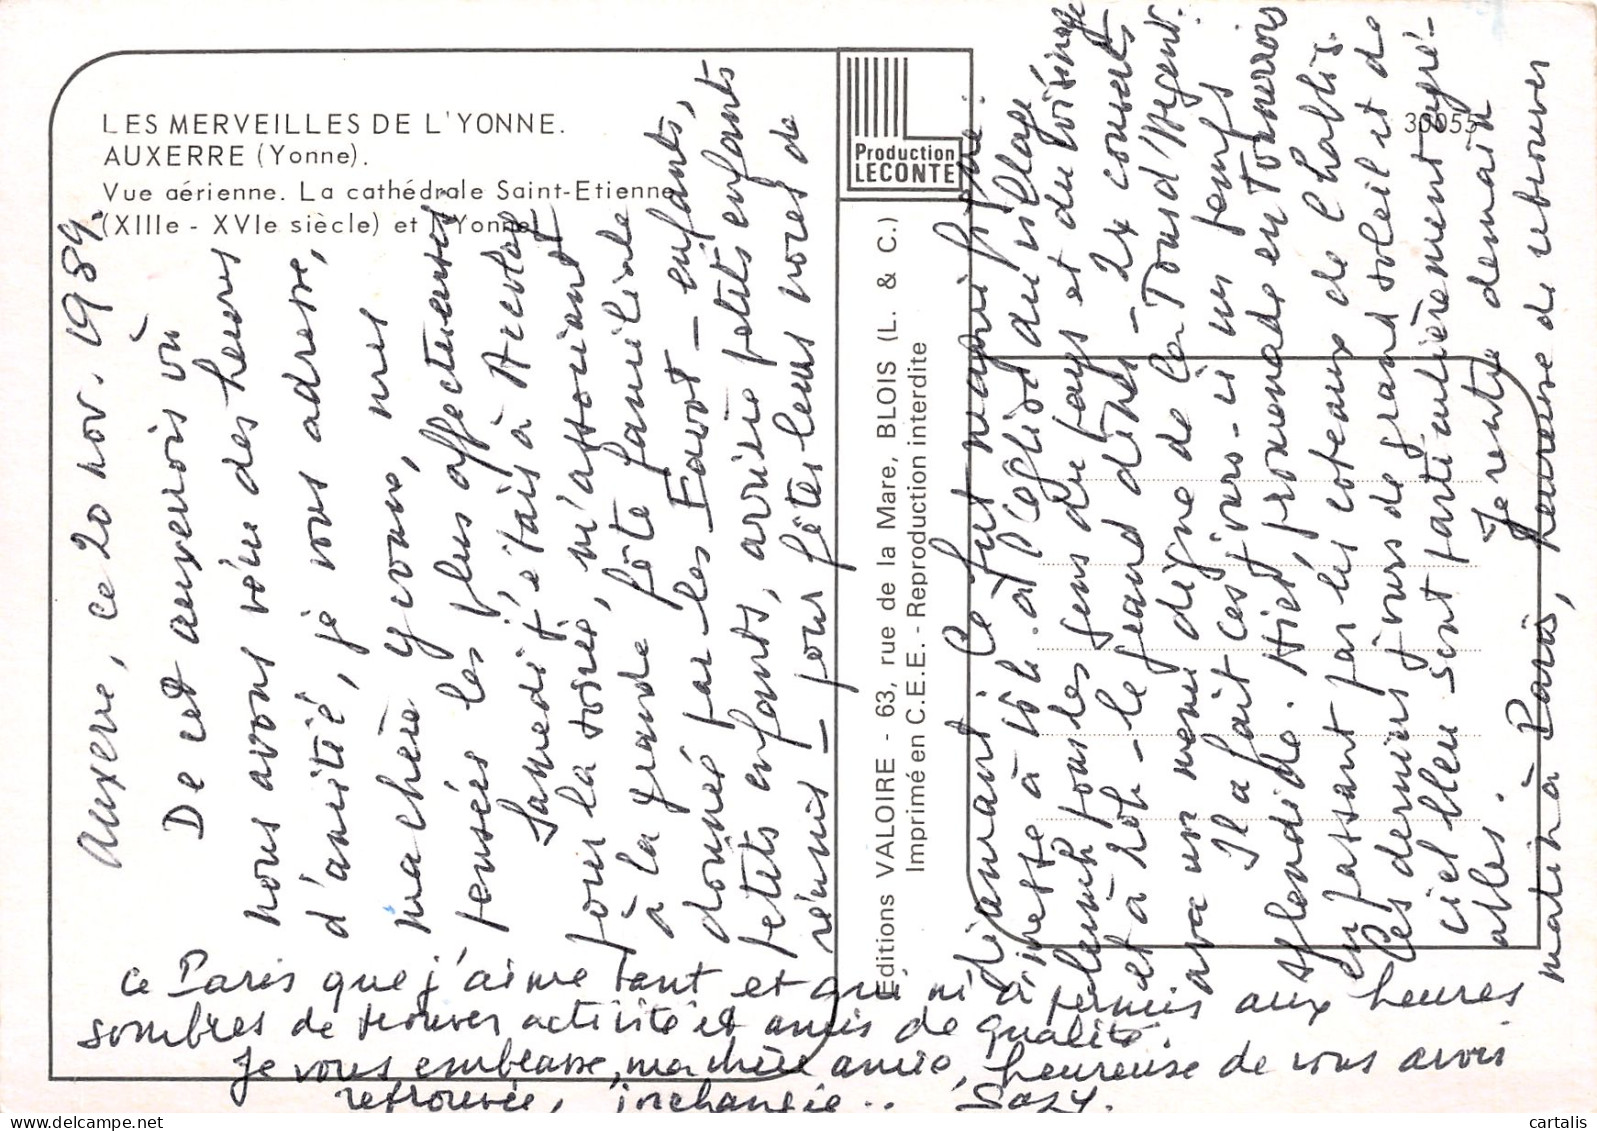 LES MERVEILLES DE L'YONNE.
AUXERRE (Yonne).
Vue aérienne. La cathédrale Saint-Etienne
(XIIIe - XVIe siècle) et l'Yonne.
Production
LECONTE
30055
Editions VALOIRE - 63, rue de la Mare, BLOIS (L. & C.)
Imprimé en C.E.E. - Reproduction interdite
Auxerre, ce 20 nov. 1989.
De cet auxerrois où
nous avons vécu des heures
d'amitié, je vous adresse,
ma chère Yvonne, mes
pensées les plus affectueuses
Samedi j'étais à Accolay
pour la soirée, m'associant
à la grande fête familiale
donnée par les Favot - enfants,
petits enfants, arrière petits enfants
réunis - pour fêter leurs noces de
diamant. Ce fut magnifique.
messe à 15h. à l'église du village
pleine tous les gens du pays et du voisinage
et à 20h - le grand dîner - 2x couverts
avec un menu digne de la Tour d'Argent.
Il a fait ces jours-ci un temps
splendide. Hier, promenade en Tonnerrois
en passant par les coteaux de Chablis.
Ces derniers jours de grand soleil et de
ciel bleu sont particulièrement agré-
ables.
Je rentre demain
matin à Paris, heureuse de retrouver
ce Paris que j'aime tant et qui m'a permis aux heures
sombres de trouver activité et amis de qualité.
Je vous embrasse, ma chère amie, heureuse de vous avoir
retrouvée, inchangée.. Suzy.